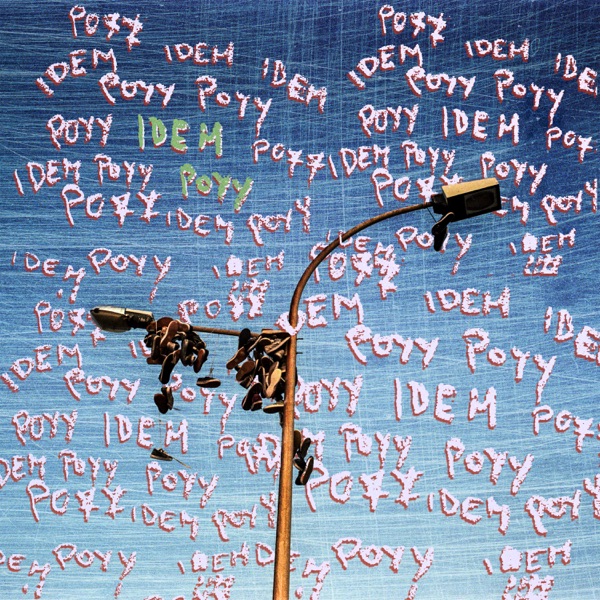 POYY POYY
IDEM IDEM IDEM IDEM IDEM IDE
POYY POYY POYY POYY
POYY IDEM POYY POYY IDEM POY
IDEM POYY POYY IDEM POYY POYY
POYY IDEM POYY POYY POYY
IDEM POYY IDEM IDEM POYY IDEM
POYY POYY POYY
IDEM IDEM IDE
IDEM POYY POYY
POYY POYY POYY IDEM POYY
POYY IDEM POYY POYY POYY
IDEM POYY POYY
POYY IDEM POYY POYY IDEM POYY
POYY IDEM POYY IDEM